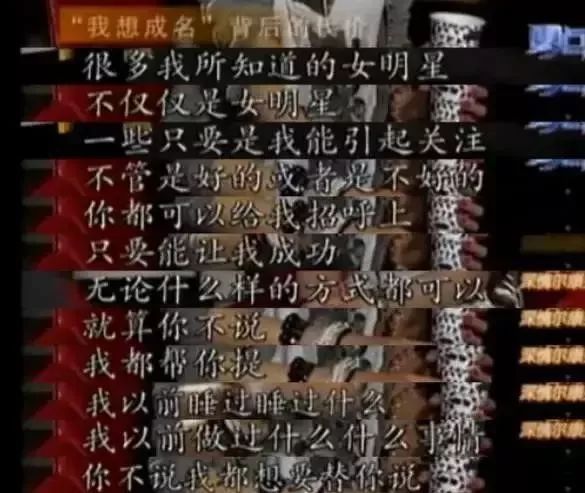 “我想成名”背后的代价
很多我所知道的女明星
不仅仅是女明星
一些只要是我能引起关注
不管是好的或者是不好的
你都可以给我招呼上
只要能让我成功
无论什么样的方式都可以
就算你不说
我都帮你提
我以前睡过睡过什么
我以前做过什么什么事情
你不说我都想要替你说